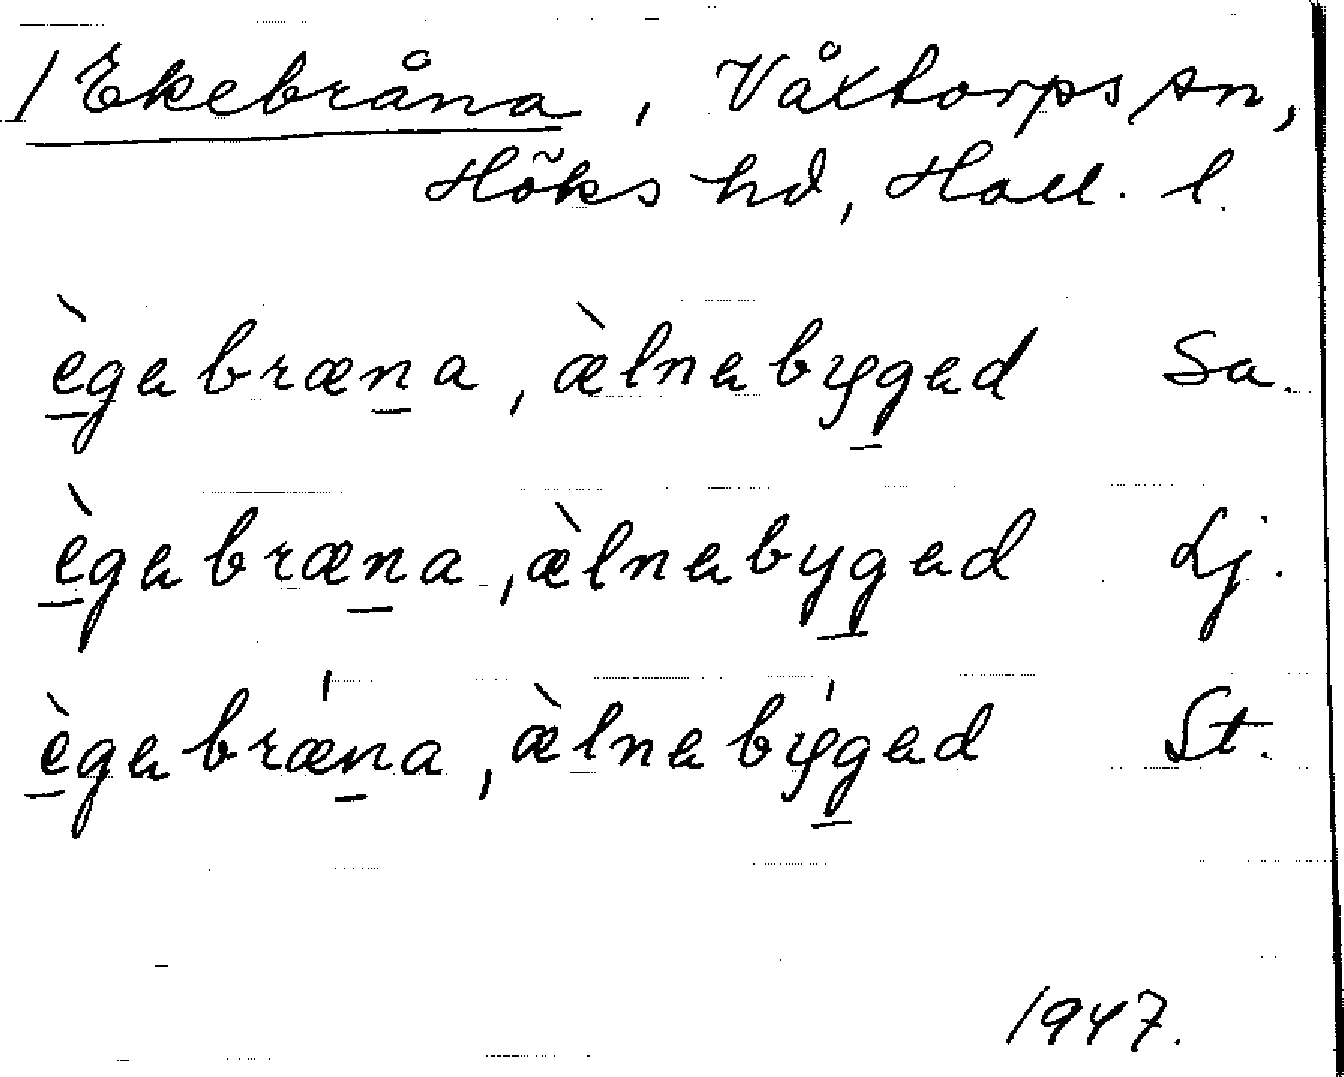 / Ekebråna, Våxtorps sn,
Höks hd, Hall. l.
ègabræna, ælnabygad Sa.
ègabræna, ælnabygad Lj.
ègabrǽna, ælnabýgad St.
1947.